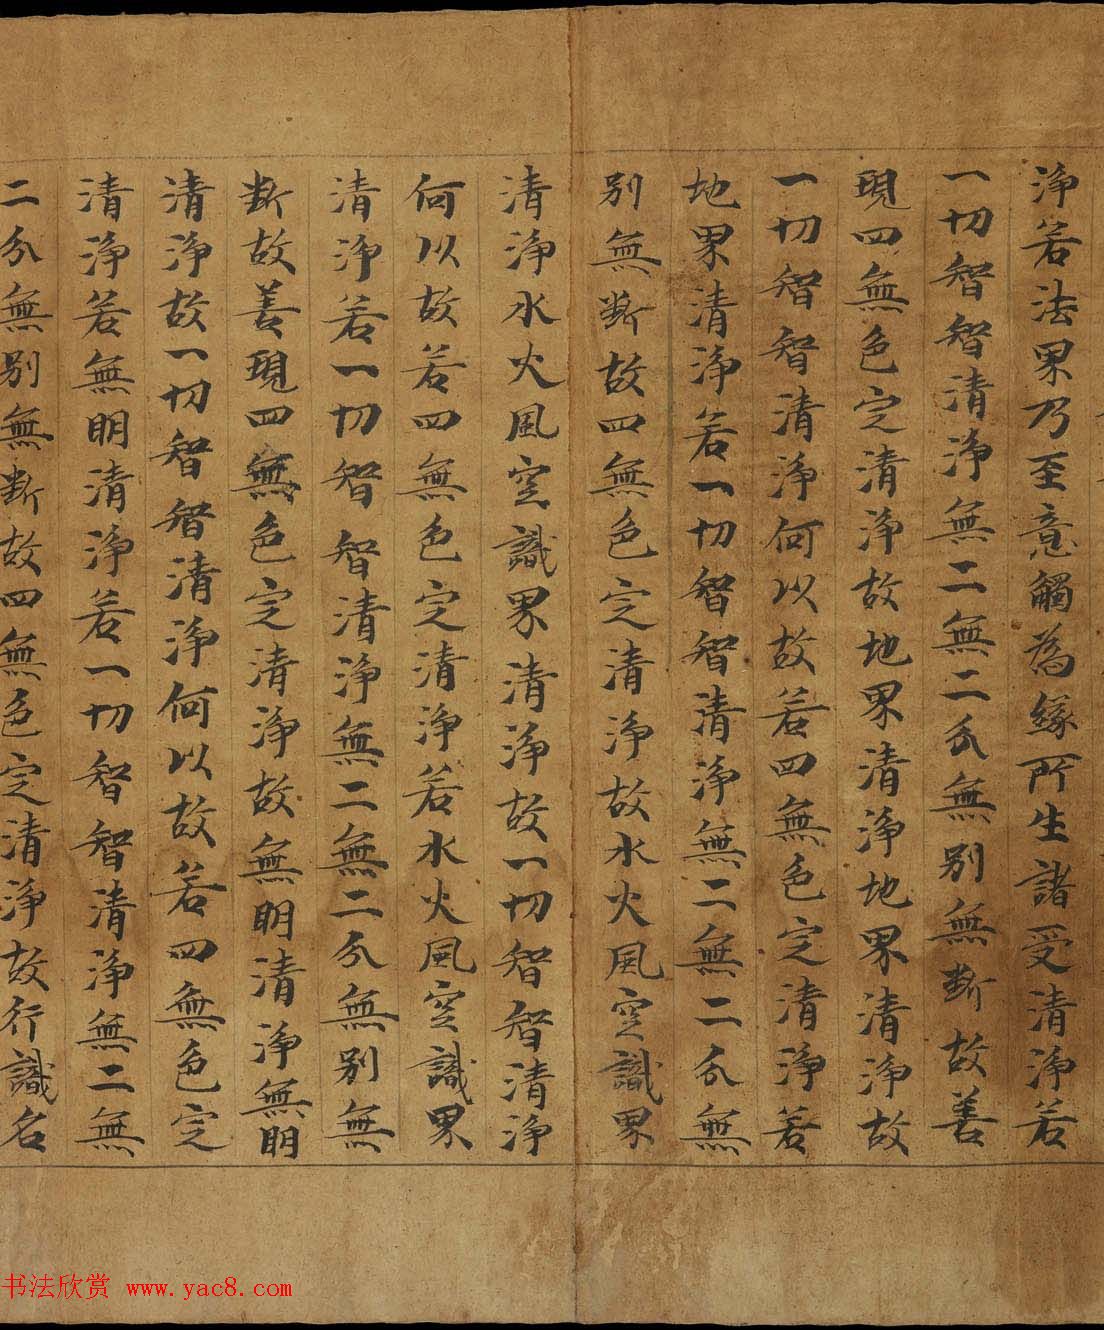 淨若法界乃至意觸為緣所生諸受清淨若
一切智智清淨無二無二分無別無斷故善
現四無色定清淨故地界清淨地界清淨故
一切智智清淨何以故若四無色定清淨若
地界清淨若一切智智清淨無二無二分無
別無斷故四無色定清淨故水火風空識界
清淨水火風空識界清淨故一切智智清淨
何以故若四無色定清淨若水火風空識界
清淨若一切智智清淨無二無二分無別無
斷故善現四無色定清淨故無明清淨無明
清淨故一切智智清淨何以故若四無色定
清淨若無明清淨若一切智智清淨無二無
二分無別無斷故四無色定清淨故行識名
书法欣赏 www.yac8.com